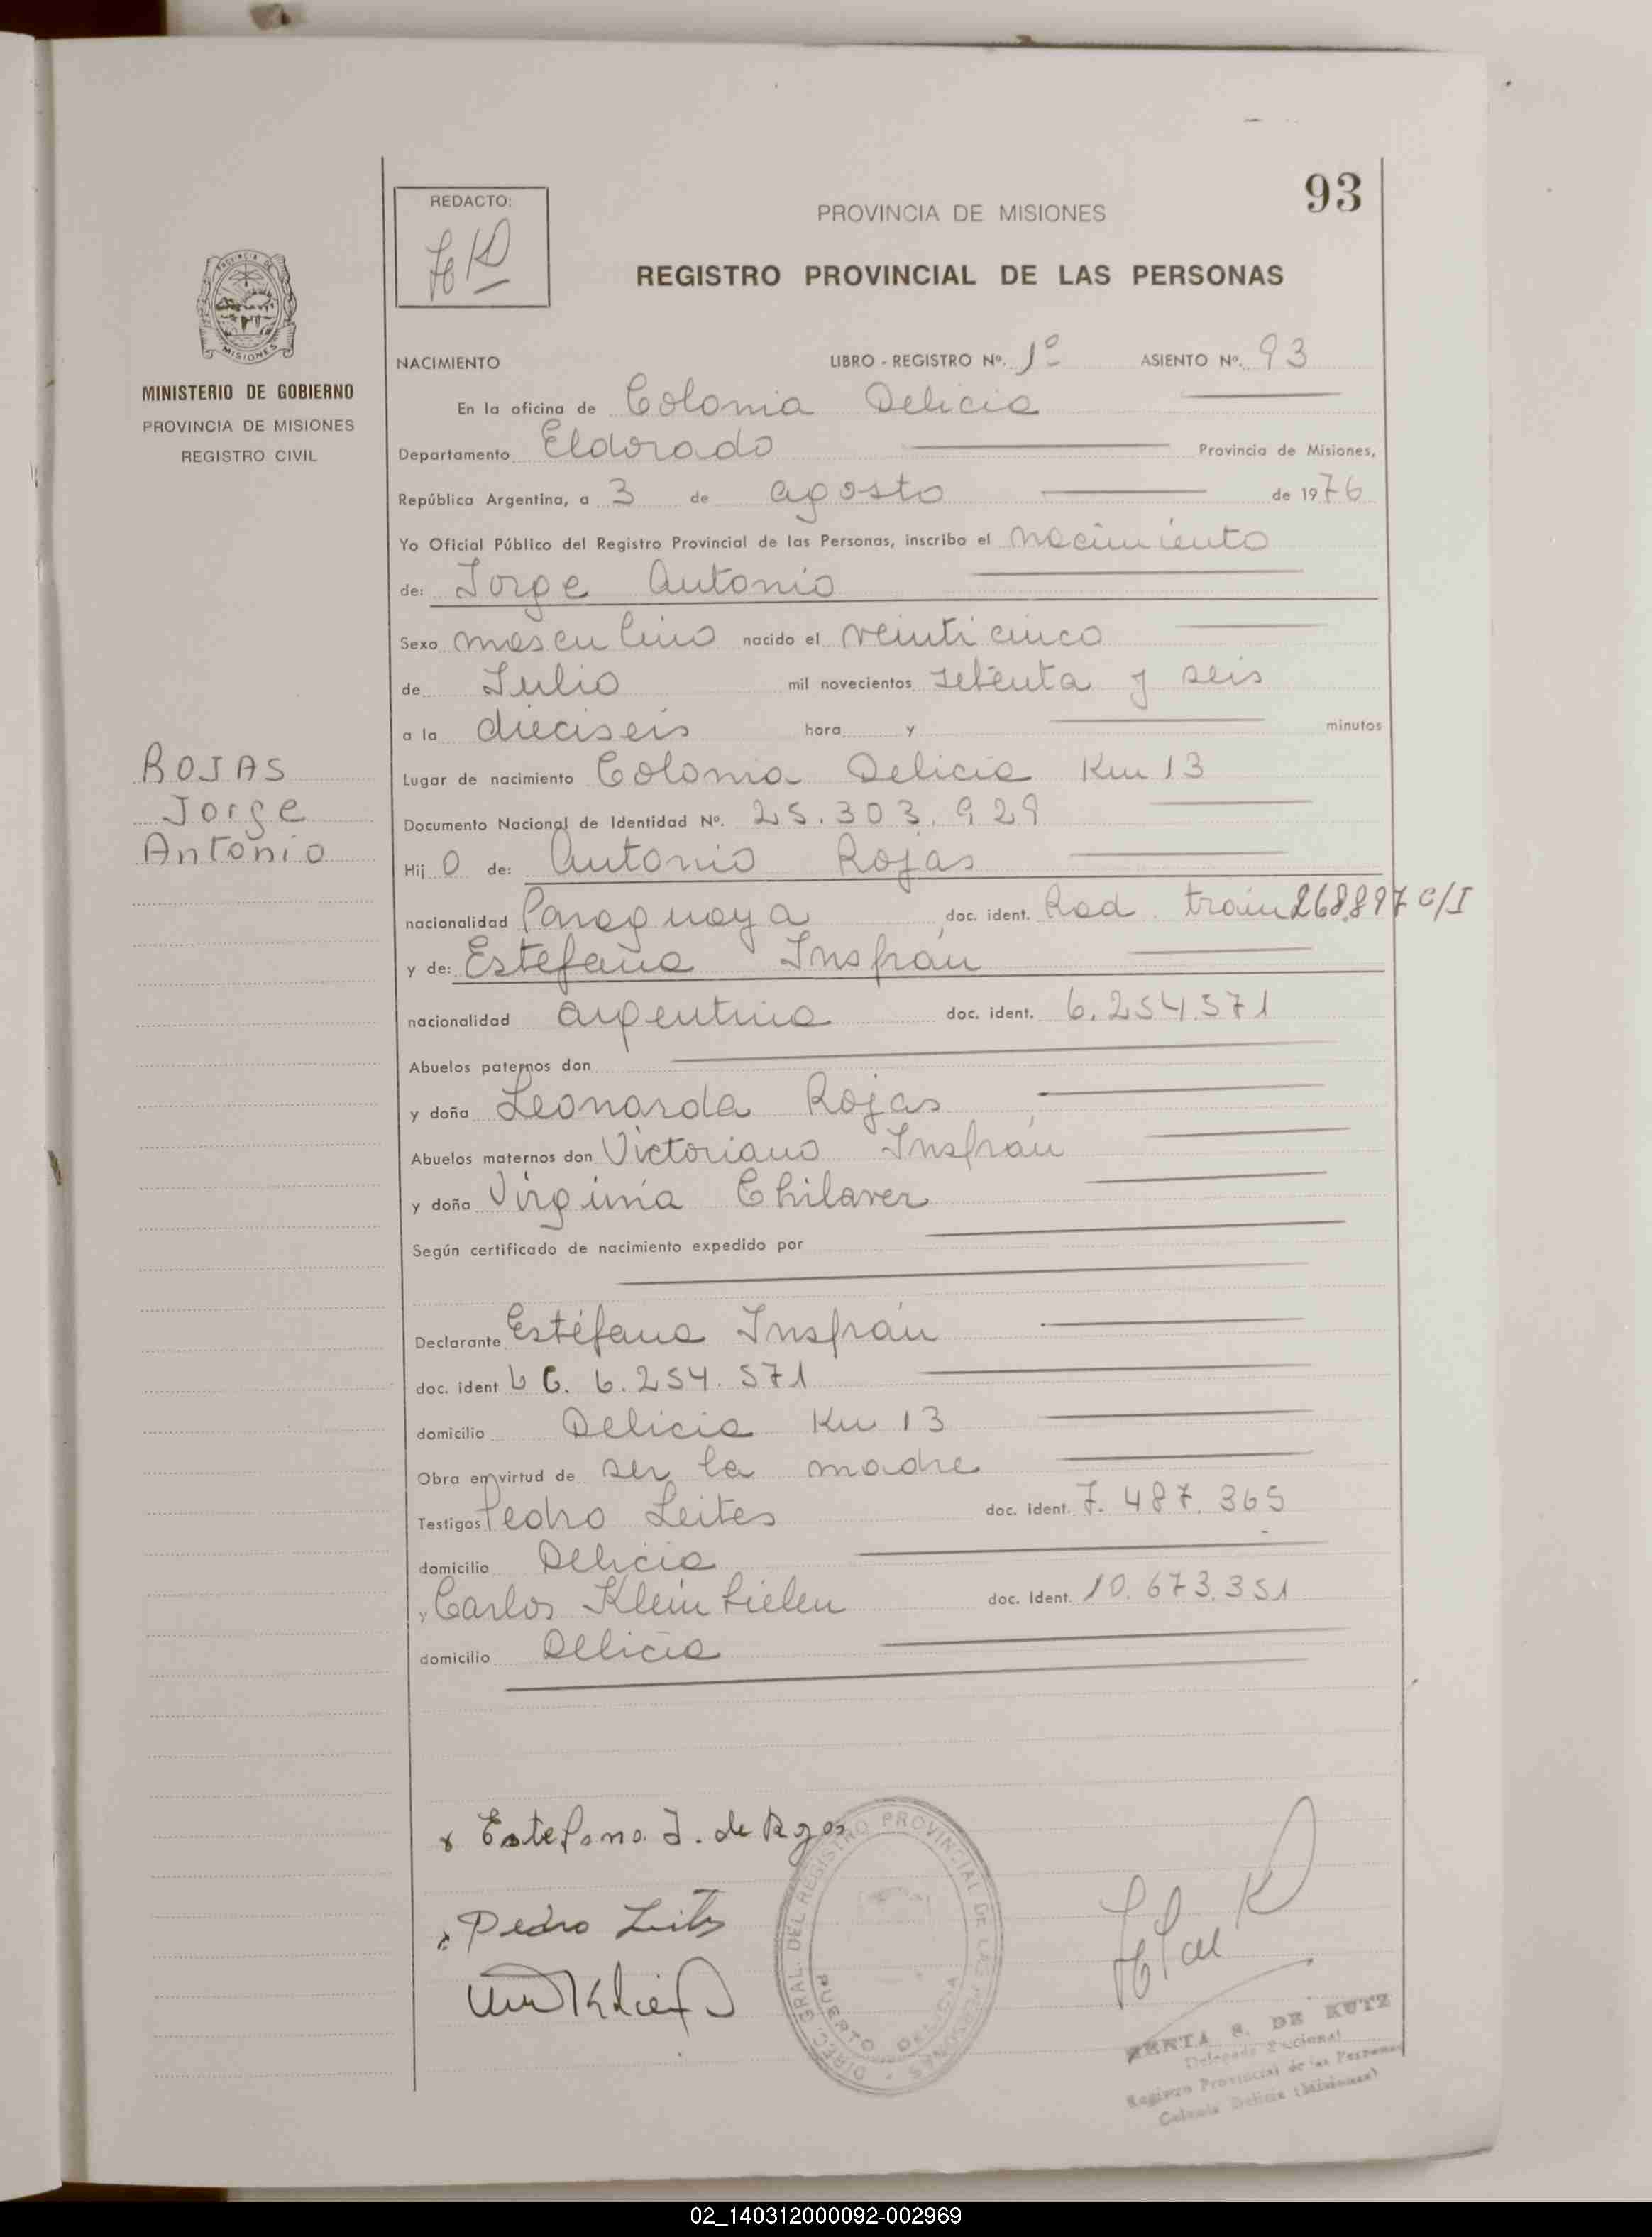 93
REDACTO:
PROVINCIA DE MISIONES
REGISTRO PROVINCIAL DE LAS PERSONAS
MISIONES
MINISTERIO DE GOBIERNO
PROVINCIA DE MISIONES
REGISTRO CIVIL
NACIMIENTO LIBRO - REGISTRO Nº. 1º ASIENTO Nº. 93
En la oficina de Colonia Delicia
Departamento Eldorado Provincia de Misiones,
República Argentina, a 3 de agosto de 1976
Yo Oficial Público del Registro Provincial de las Personas, inscribo el nacimiento
de: Jorge Antonio
Sexo masculino nacido el veinticinco
de Julio mil novecientos setenta y seis
a la dieciseis hora y minutos
ROJAS
Jorge
Antonio
Lugar de nacimiento Colonia Delicia Km 13
Documento Nacional de Identidad Nº. 25.303.929
Hij o de: Antonio Rojas
nacionalidad Paraguaya doc. ident. Rad. tram 268.897 C/I
y de: Estefana Insfrán
nacionalidad argentina doc. ident. 6.254.571
Abuelos paternos don
y doña Leonarda Rojas
Abuelos maternos don Victoriano Insfrán
y doña Virginia Chilaver
Según certificado de nacimiento expedido por
Declarante Estéfana Insfrán
doc. ident L C. 6.254.571
domicilio Delicia Km 13
Obra en virtud de ser la madre
Testigos Pedro Leites doc. ident. 7.487.365
domicilio Delicia
y Carlos Klein doc. Ident. 10.673.351
domicilio Delicia
x Estefana I. de Rojas
x Pedro Leites
DIREC. GRAL. DEL REGISTRO PROVINCIAL DE LAS PERSONAS
PUERTO DELICIA
S. DE KUTZ
Delegada Seccional
Registro Provincial de las Personas
Colonia Delicia (Misiones)
02_140312000092-002969